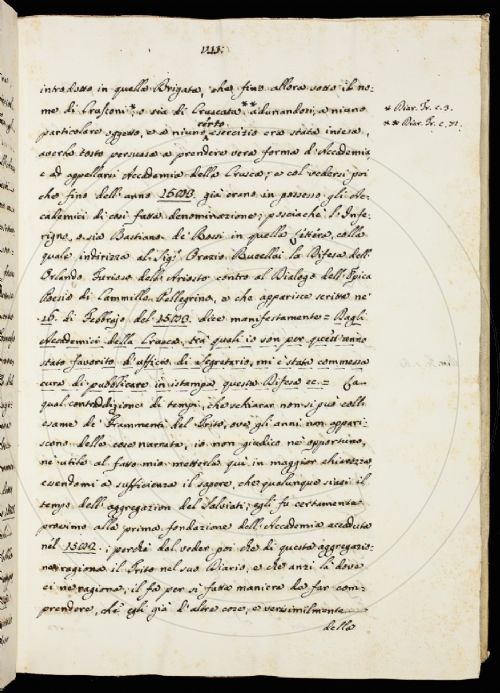 VII.
introdotto in quella Brigata, che fino allora sotto il no=
me di Crusconi*, o sia di Cruscata** adunandosi, a niuno
* Diar. Tr. c. 3.
** Diar. Tr. c. 31.
particolare oggetto, e a niuno certo esercizio era stata intesa,
averla tosto persuasa a prendere vera forma d'Accademia,
e ad appellarsi Accademia della Crusca; e col vedersi poi
che fino dell'anno già erano in possesso gli Ac=
cademici di così fatta denominazione; posciachè l'Infe=
rigno, o sia Bastiano de' Rossi in quella Lettera, colla
quale indirizza al Sig.r Orazio Rucellai la Difesa dell'
Orlando Furioso dell'Ariosto contro al Dialogo dell'Epica
Poesia di Cammillo Pellegrino, e che apparisce scritta ne'
16. di Febbrajo del dice manifestamente = Dagli
Accademici della Crusca, tra' quali io son per quest'anno
stato favorito d'uffizio di Segretario, mi è stata commessa
cura di pubblicare in istampa questa Difesa ec. =
qual contraddizione di tempi, che schiarar non si può coll'
esame de' Frammenti del Trito, ove gli anni non appari=
scono delle cose narrate, io non giudico nè opportuno,
nè utile al fatto mio metterla qui in maggior chiarezza,
essendomi a sufficienza il sapere, che qualunque siasi il
tempo dell'aggregazion del Salviati; egli fu certamente
provino alla prima fondazione dell'Accademia accaduta
nel perchè dal veder poi che di questa aggregazio=
ne ragiona il Trito nel suo Diario, e che anzi là dove
ci ne ragiona, il fa per sì fatta maniera da far com=
prendere, ch'egli già d'altre cose, e verisimilmente
della